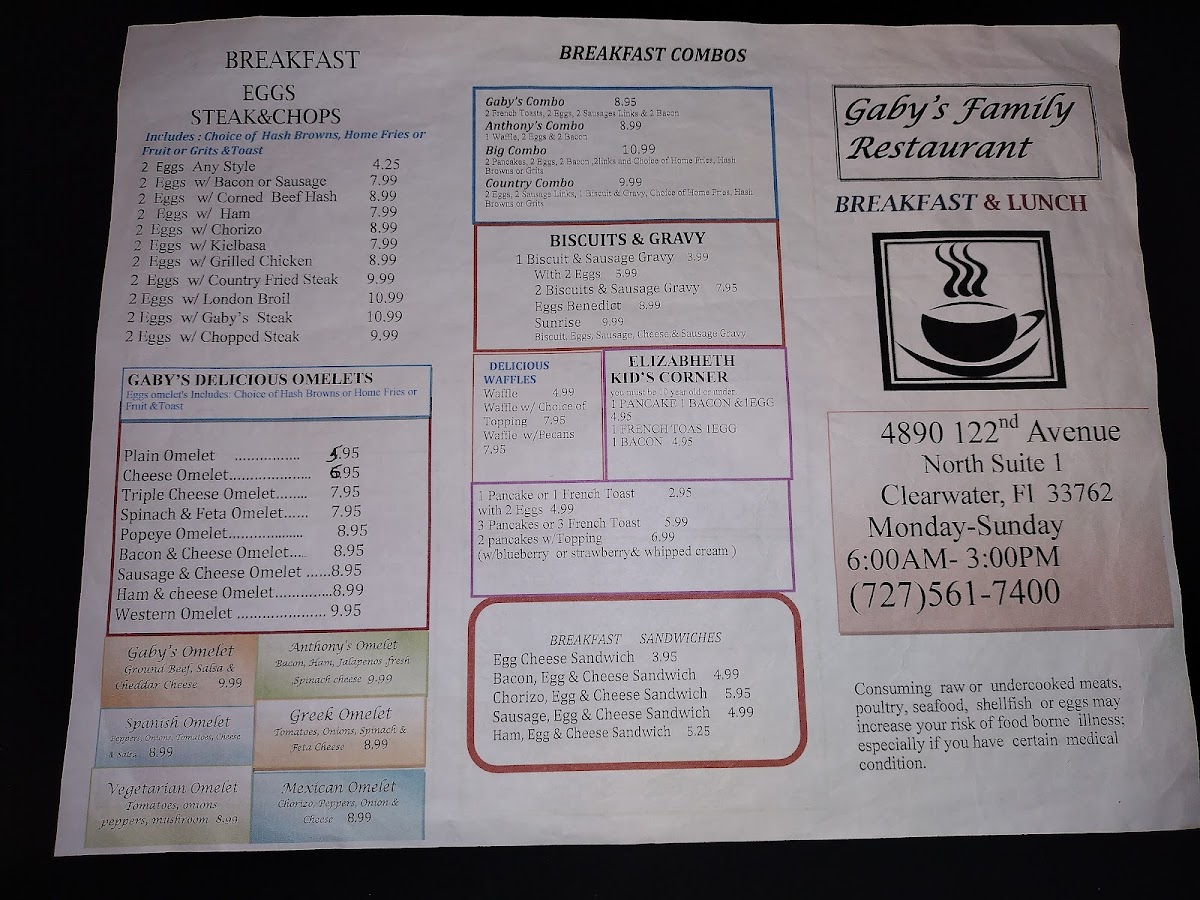 BREAKFAST
EGGS
STEAK&CHOPS
Includes : Choice of Hash Browns, Home Fries or
Fruit or Grits &Toast
2 Eggs Any Style 4.25
2 Eggs w/ Bacon or Sausage 7.99
2 Eggs w/ Corned Beef Hash 8.99
2 Eggs w/ Ham 7.99
2 Eggs w/ Chorizo 8.99
2 Eggs w/ Kielbasa 7.99
2 Eggs w/ Grilled Chicken 8.99
2 Eggs w/ Country Fried Steak 9.99
2 Eggs w/ London Broil 10.99
2 Eggs w/ Gaby's Steak 10.99
2 Eggs w/ Chopped Steak 9.99
GABY'S DELICIOUS OMELETS
Eggs omelet's Includes: Choice of Hash Browns or Home Fries or
Fruit &Toast
Plain Omelet ................. 5.95
Cheese Omelet..................... 6.95
Triple Cheese Omelet........ 7.95
Spinach & Feta Omelet...... 7.95
Popeye Omelet................... 8.95
Bacon & Cheese Omelet.... 8.95
Sausage & Cheese Omelet ......8.95
Ham & cheese Omelet..............8.99
Western Omelet ...................... 9.95
Gaby's Omelet
Ground Beef, Salsa &
Cheddar Cheese 9.99
Anthony's Omelet
Bacon, Ham, Jalapenos ,fresh
Spinach cheese 9.99
Spanish Omelet
Peppers, Onions, Tomatoes, Cheese
& Salsa 8.99
Greek Omelet
Tomatoes, Onions, Spinach &
Feta Cheese 8.99
Vegetarian Omelet
Tomatoes, onions
peppers, mushroom 8.99
Mexican Omelet
Chorizo, Peppers, Onion &
Cheese 8.99
BREAKFAST COMBOS
Gaby's Combo 8.95
2 French Toasts, 2 Eggs, 2 Sausages Links & 2 Bacon
Anthony's Combo 8.99
1 Waffle, 2 Eggs & 2 Bacon
Big Combo 10.99
2 Pancakes, 2 Eggs, 2 Bacon ,2links and Choice of Home Fries, Hash
Browns or Grits
Country Combo 9.99
2 Eggs, 2 Sausage Links, 1 Biscuit & Gravy, Choice of Home Fries, Hash
Browns or Grits
BISCUITS & GRAVY
1 Biscuit & Sausage Gravy 3.99
With 2 Eggs 5.99
2 Biscuits & Sausage Gravy 7.95
Eggs Benedict 8.99
Sunrise 9.99
Biscuit, Eggs, Sausage, Cheese & Sausage Gravy
DELICIOUS
WAFFLES
Waffle 4.99
Waffle w/ Choice of
Topping 7.95
Waffle w/Pecans
7.95
ELIZABHETH
KID'S CORNER
you must be 10 year old or under
1 PANCAKE 1 BACON &1EGG
4.95
1 FRENCH TOAS 1EGG
1 BACON 4.95
1 Pancake or 1 French Toast 2.95
with 2 Eggs 4.99
3 Pancakes or 3 French Toast 5.99
2 pancakes w/Topping 6.99
(w/blueberry or strawberry& whipped cream )
BREAKFAST SANDWICHES
Egg Cheese Sandwich 3.95
Bacon, Egg & Cheese Sandwich 4.99
Chorizo, Egg & Cheese Sandwich 5.95
Sausage, Egg & Cheese Sandwich 4.99
Ham, Egg & Cheese Sandwich 5.25
Gaby's Family
Restaurant
BREAKFAST & LUNCH
4890 122nd Avenue
North Suite 1
Clearwater, Fl 33762
Monday-Sunday
6:00AM- 3:00PM
(727)561-7400
Consuming raw or undercooked meats,
poultry, seafood, shellfish or eggs may
increase your risk of food borne illness;
especially if you have certain medical
condition.